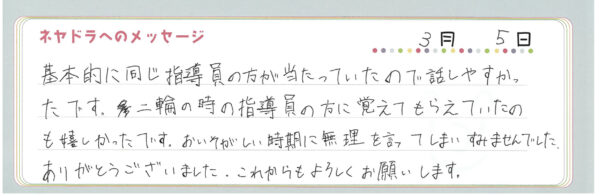 ネヤドラへのメッセージ 3月 5日
基本的に同じ指導員の方が当たっていたので話しやすかっ
たです。二輪の時の指導員の方に覚えてもらえていたの
も嬉しかったです。おいそがしい時期に無理を言ってしまいすみませんでした。
ありがとうございました。これからもよろしくお願いします。